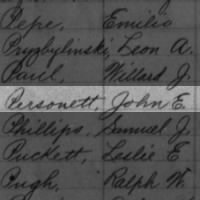 Pepe, Emilio
Przybylinski, Leon A.
Paul, Willard J.
Personett, John E.
Phillips, Samuel J.
Puckett, Leslie E
Pugh, Ralph W.